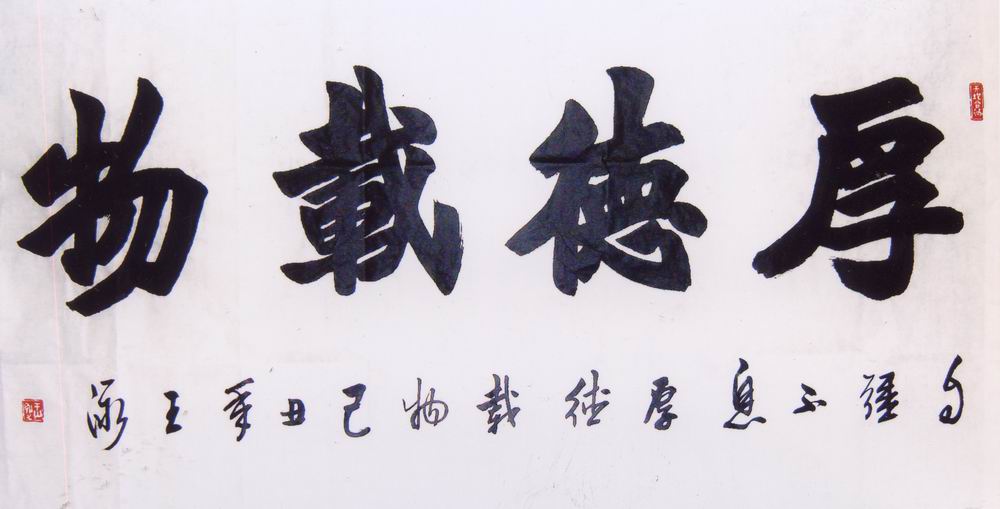 厚德載物
自強不息厚德載物己丑年王泳